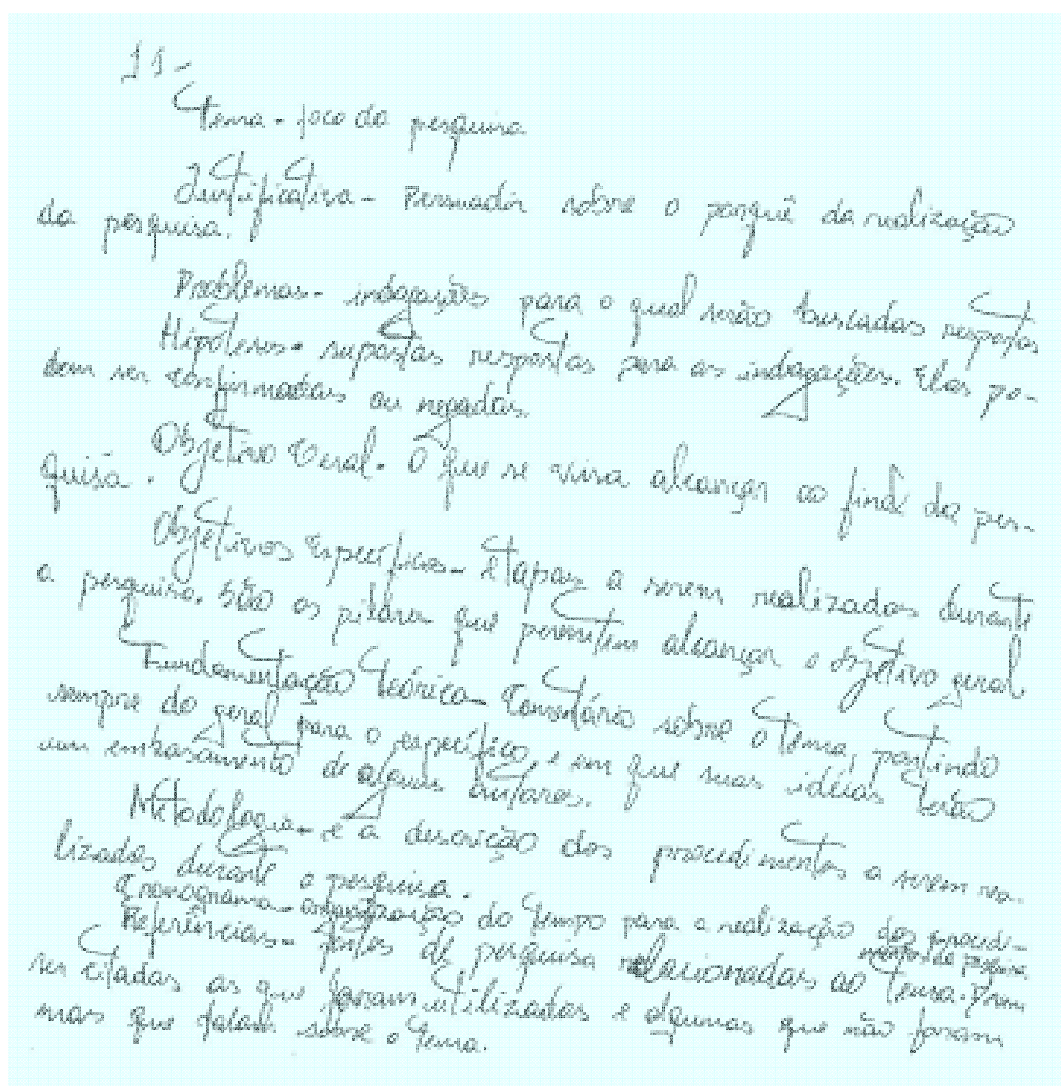 11-
Tema - foco da pesquisa
Justificativa - Persuadir sobre o porquê da realização
da pesquisa.
Problemas - indagações para o qual serão buscadas respostas
Hipóteses - supostas respostas para as indagações. Elas po-
dem ser confirmadas ou negadas.
Objetivo Geral - O que se visa alcançar ao final da pes-
quisa.
Objetivos Específicos - Etapas a serem realizadas durante
a pesquisa. São os pilares que permitem alcançar o objetivo geral.
Fundamentação Teórica - Comentário sobre o tema, partindo
sempre do geral para o específico, e em que suas idéias terão
um embasamento de alguns autores.
Metodologia - é a descrição dos procedimentos a serem rea-
lizados durante a pesquisa.
Cronograma - do tempo para a realização dos procedi-
mentos da pesquisa
Referências - fontes de pesquisa relacionadas ao tema.
ser citadas as que foram utilizadas e algumas que não foram,
mas que falam sobre o tema.